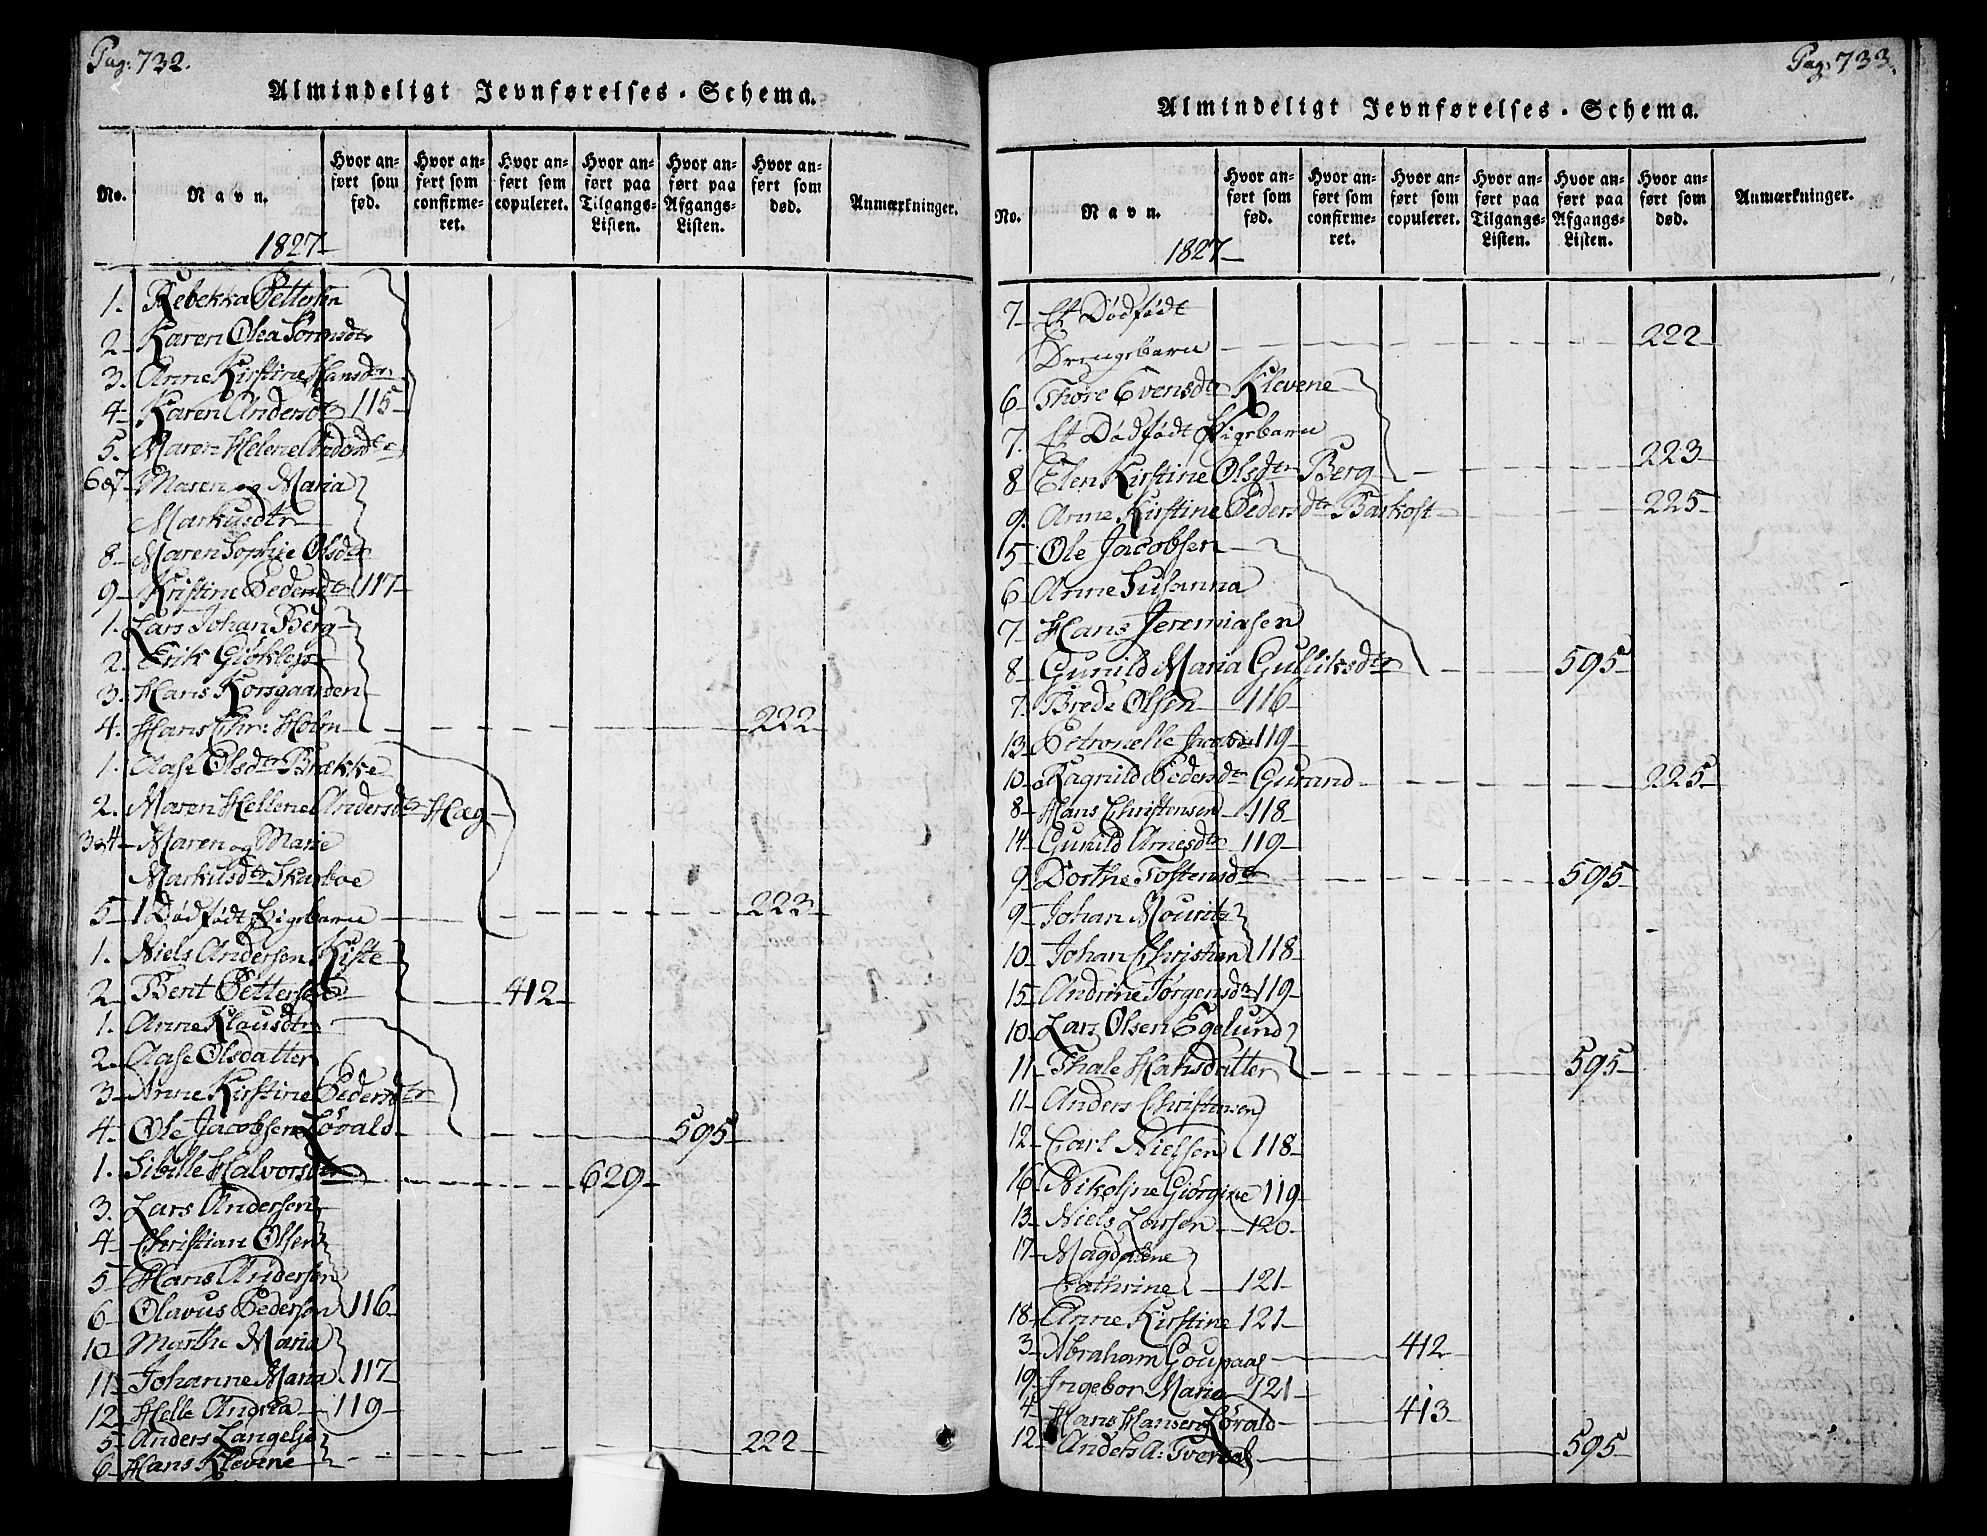 Pag: 732.
Almindeligt Jevnførelses-Schema.
No.
Navn.
Hvor anført som fød.
Hvor anført som confirmeret.
Hvor anført som copuleret.
Hvor anført paa Tilgangs-Listen.
Hvor anført paa Afgangs-Listen.
Hvor anført som død.
Anmærkninger.
1827
1. Rebekka Pettersen
2 Karen Olea Sørensdtr
3. Anne Kirstine Hansdtr
4 Karen Andersdtr 115
5. Maren Helene Andersdtr
6 & 7 Maren og Maria
Markusdtr
8 Maren Sophie Olsdtr
9 Kristine Pedersdtr 117
1. Lars Johan Berg
2. Erik Giökleys
3. Hans Korsgaarden
4. Hans Chr: Holm 222
1. Aase Olsdtr Brække
2. Maren Hellene Andersdtr Hæg
3 & 4 Maren og Marie
Markusdtr Skarboe
5 1 Dødfødt Pigebarn 223
1. Niels Andersen Kiste
2 Bent Pettersen 412
1. Anne Klausdtr
2. Aase Olsdatter
3 Anne Kirstine Pedersdtr
4. Ole Jacobsen Lövald 595
1. Sibille Halvorsdtr 629
3. Lars Andersen
4 Christian Olsen
5 Hans Andersen
6 Olavus Pedersen 116
10 Marthe Maria
11 Johanne Maria 117
12 Helle Andrea 119
5 Anders Langelje
6 Hans Klevene 222
Pag. 733.
Almindeligt Jevnførelses-Schema.
No.
Navn.
Hvor anført som fød.
Hvor anført som confirmeret.
Hvor anført som copuleret.
Hvor anført paa Tilgangs-Listen.
Hvor anført paa Afgangs-Listen.
Hvor anført som død.
Anmærkninger.
1827
7 Et Dødfødt
Drengebarn 222
6 Thore Evensdtr Klevene
7. Et Dødfødt Pigebarn
8 Elen Kirstine Olsdtr Berg 223
9. Anne Kirstine Pedersdtr Barkost 225
5 Ole Jacobsen
6 Anne Susanna
7 Hans Jeremiasen
8 Gunild Maria Gulliksdtr 595
7. Brede Olsen 116
13 Petronelle 119
10 Ragnild Pedersdtr Gurand 225
8 Hans Christensen 118
14 Gunild Arnesdtr 119
9 Dorthe Tostensdtr 595
9 Johan Mouritz
10 Johan Christian 118
15 Andrine Jørgensdtr 119
10 Lars Olsen Egelund
11 Thale Hansdatter 595
11 Anders Christensen
12 Carl Nielsen 118
16 Nikoline Giörgine 119
13 Niels Larsen 120
17 Magdalene
Cathrine 121
18 Anne Kirstine 121
3 Abraham Goupaag 412
19 Ingebor Maria 121
4 Hans Hansen Lövald 413
12 Anders A: 595